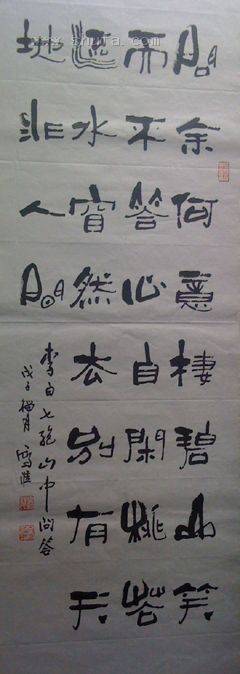 問余何意棲碧山笑
而不答心自閑桃花
流水窅然去別有天
地非人間
李白七絕山中問答
戊子 月